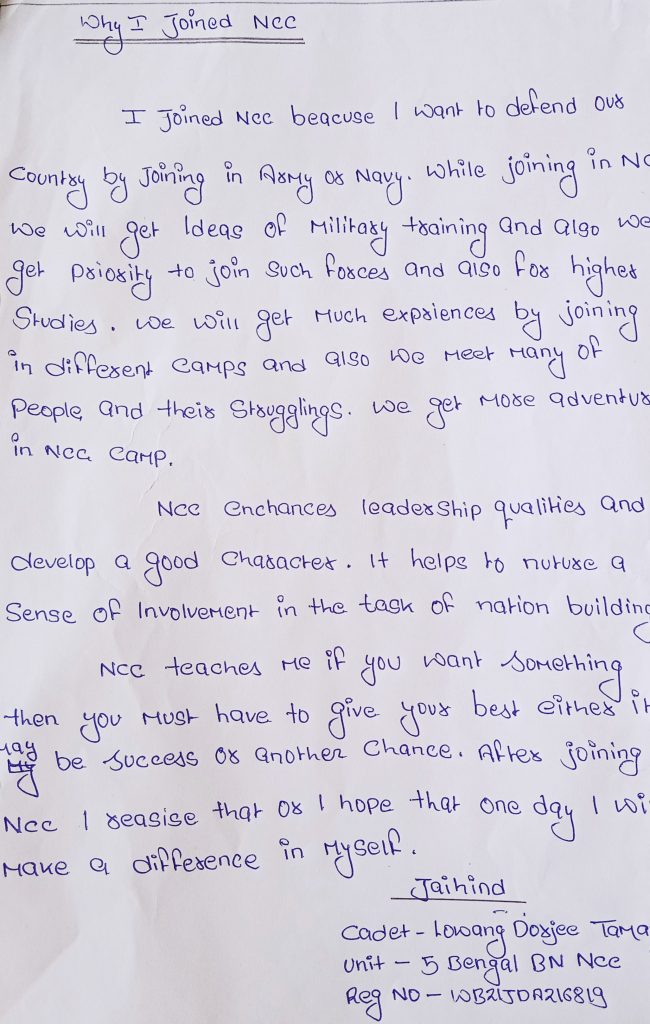 Why I Joined NCC
I Joined NCC beacuse I want to defend our
Country by Joining in Army or Navy. While joining in NC
We will get Ideas of Military training and also we
get priority to join such forces and also for higher
Studies. We will get Much expriences by joining
in different camps and also we meet many of
People and their Strugglings. We get more adventur
in NCC camp.
NCC enchances leadership qualities and
develop a good character. It helps to nuture a
Sense of Involvement in the task of nation building
NCC teaches me if you want something
then you must have to give your best either it
may be success or another chance. After joining
NCC I reasise that or I hope that one day I wi
Make a difference in Myself.
Jaihind
Cadet - Lowang Dorjee Tama
Unit - 5 Bengal BN NCC
Reg NO - WB21JDA216819